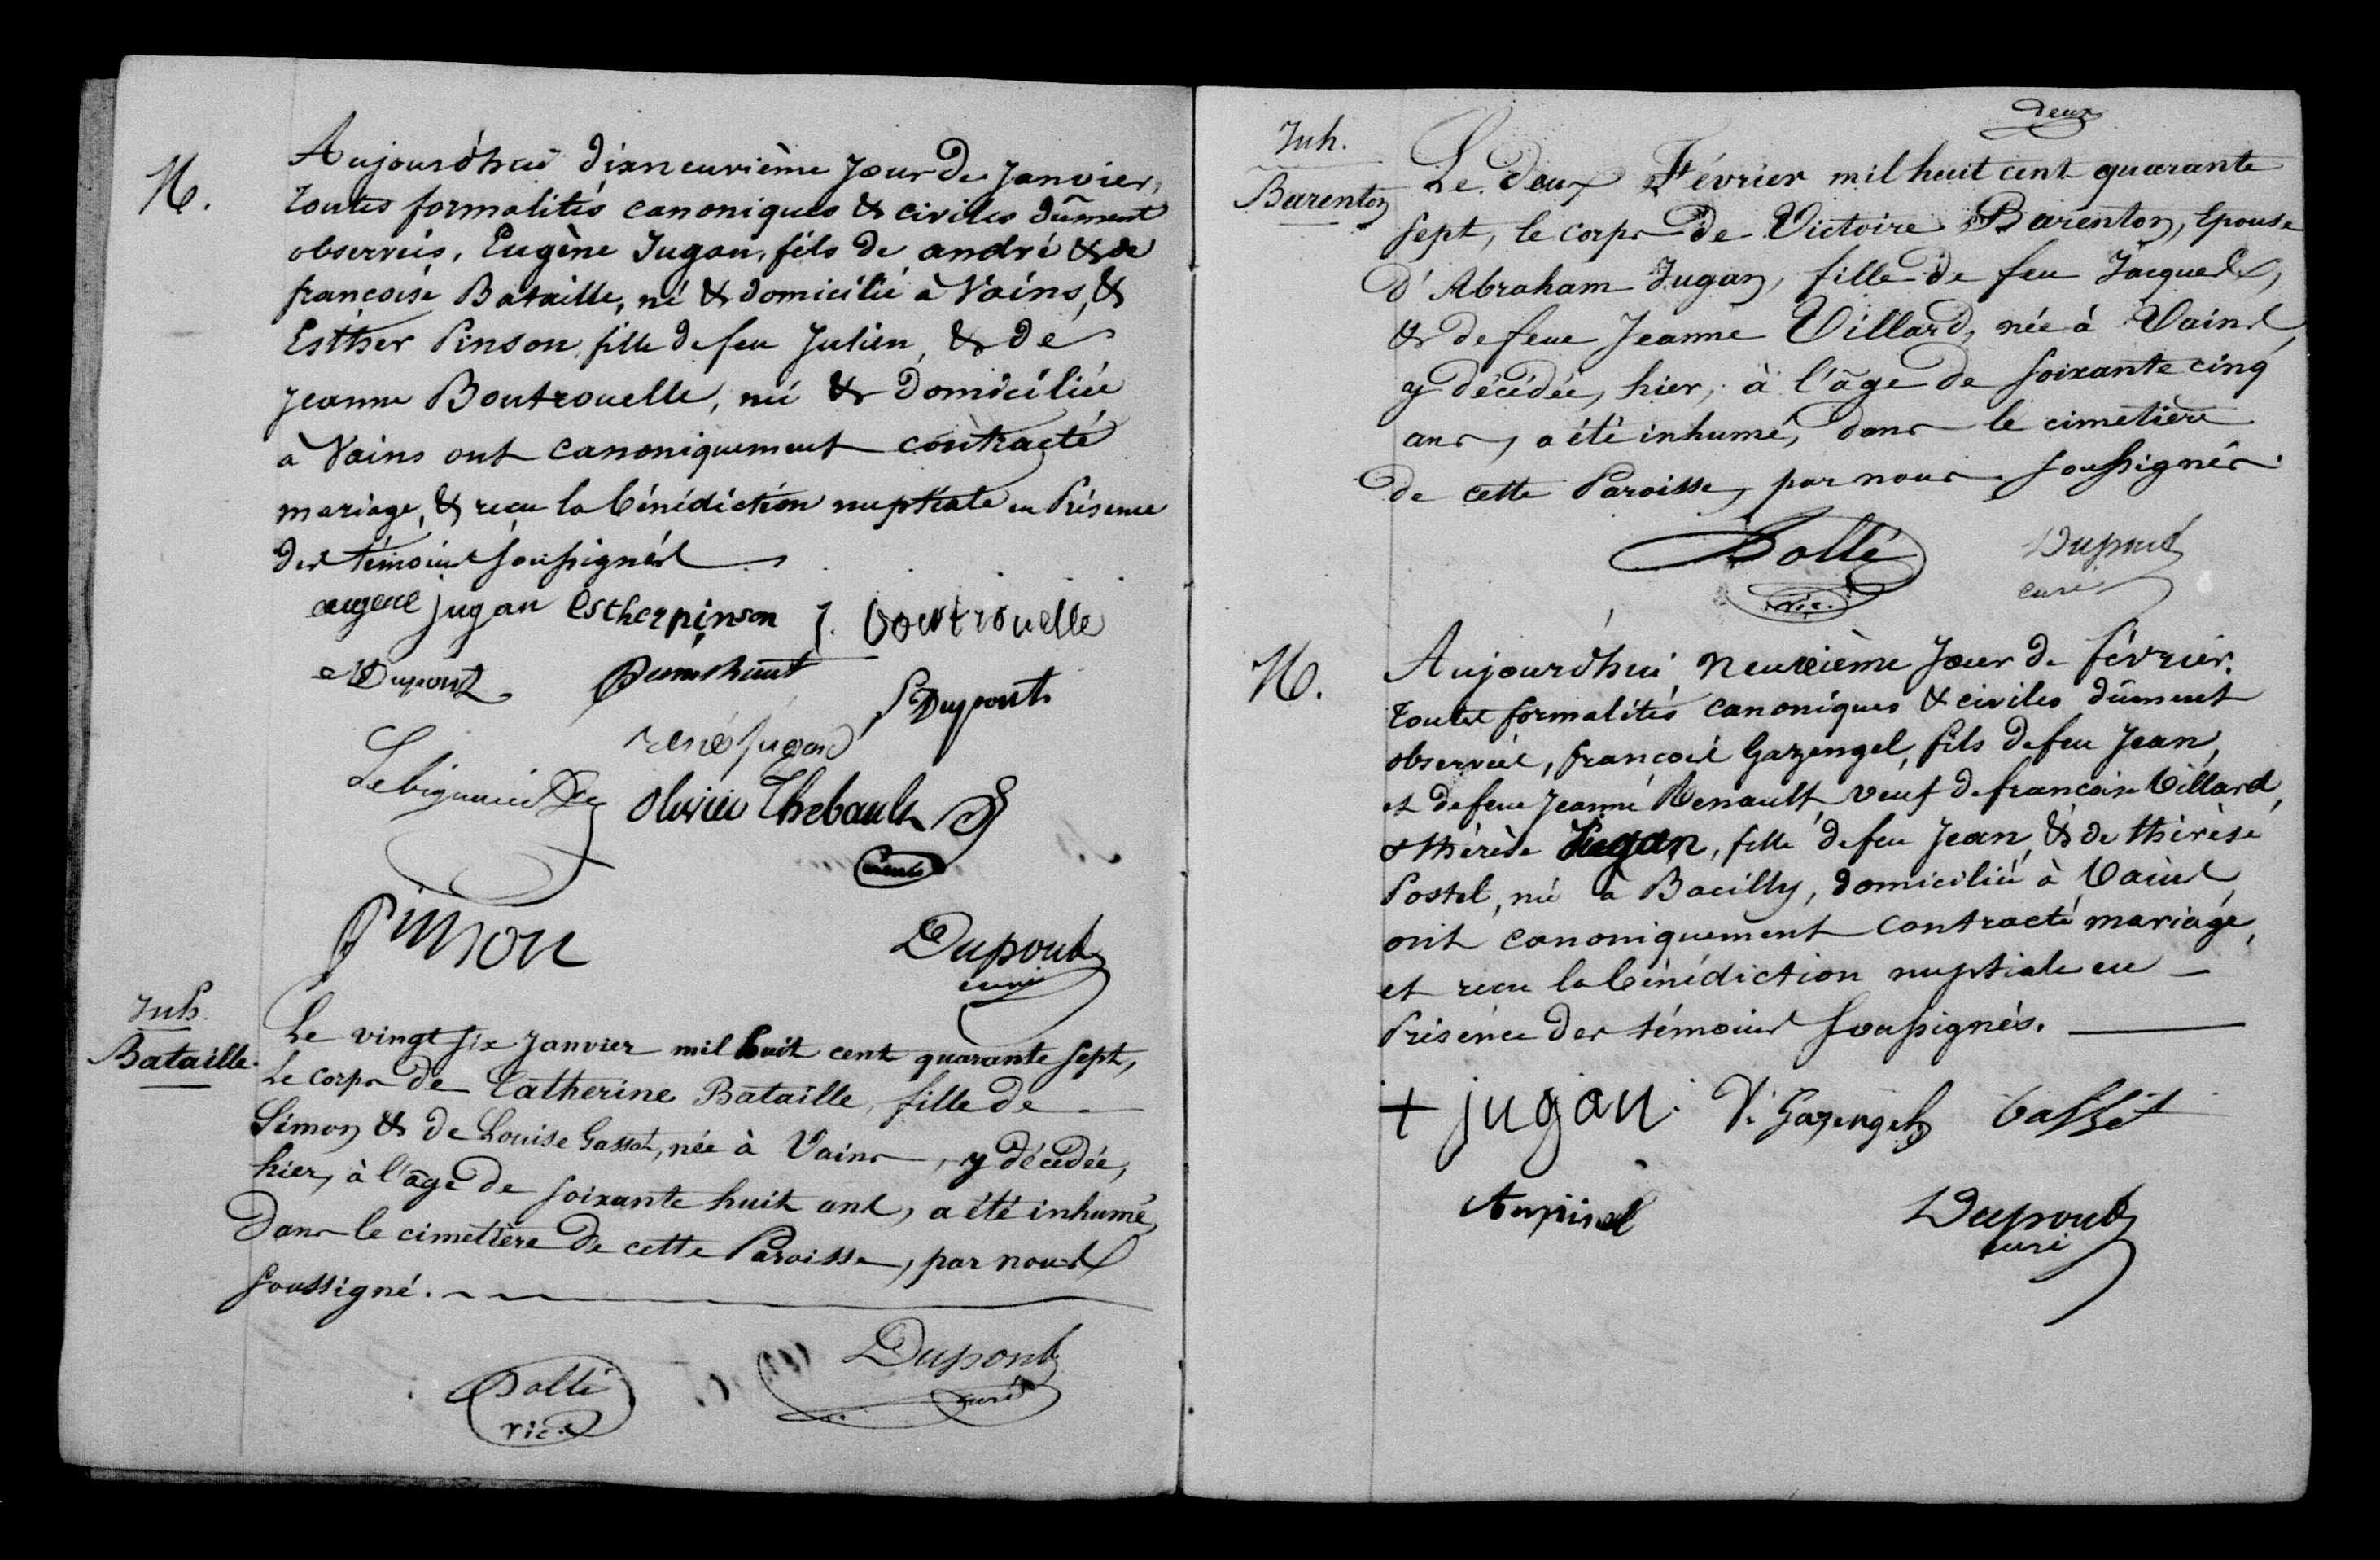 M.
Aujourd'hui dixneuvième jour de Janvier,
toutes formalités canoniques & civiles dûment
observées, Eugène Jugan, fils de andré & de
françoise Bataille, né & domicilié à Vains, &
Esther Pinson, fille de feu Julien, & de
Jeanne Boutrouelle, née & domiciliée
à Vains ont canoniquement contracté
mariage, & reçu la bénédiction nuptiale en Présence
des témoins soussignés
eugene jugan esther pinson J. boutrouelle
Dupont
P Dupont
rené jugan
olivier Thebault
Pinson
Dupont
curé
Inh.
Bataille.
Le vingt six Janvier mil huit cent quarante sept,
Le corps de Catherine Bataille, fille de
Simon & de Louise Gassot, née à Vains, y décédée,
hier, à l'âge de soixante huit ans, a été inhumé,
Dans le cimetière de cette Paroisse, par nous
soussigné.
Dallé
vic.
Dupont
curé
deux
Inh.
Barenton
Le deux Février mil huit cent quarante
sept, le corps de Victoire Barenton, Epouse
d'Abraham Jugan, fille de feu Jacques,
& de feue Jeanne Villard, née à Vains,
y décédée, hier, à l'âge de soixante cinq
ans, a été inhumé, dans le cimetière
de cette Paroisse, par nous soussignés.
Dallé
vic.
Dupont
curé
M.
Aujourd'hui neuvième Jour de février,
toutes formalités canoniques & civiles dûment
observées, françois Gazengel, fils de feu Jean,
et de feue Jeanne Renault, veuf de françoise Villard,
& thérèse Jugan, fille de feu Jean, & de thérèse
Postel, née à Bacilly, domiciliée à Vains
ont canoniquement contracté mariage,
et reçu la bénédiction nuptiale en
Présence des témoins soussignés.
+ jugan. V. Gazengel basset
Aupinel
Dupont
curé